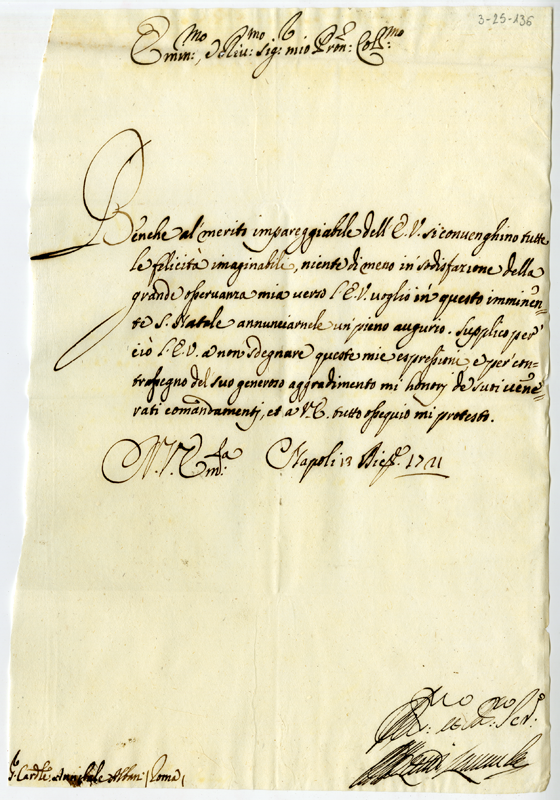 3-25-136
Emin:mo, e Rev:mo Sig: mio Pron: Coll:mo
Benche al merito impareggiabile dell'E.V. si convenghino tutte
le felicità imaginabili, niente di meno in sodisfazione della
grande osservanza mia verso l'E.V. voglio in questo imminen=
te S. Natale annunziarnele un pieno augurio. Supplico per
ciò l'E.V. a non sdegnare queste mie espressioni, e per con=
trasegno del suo generoso aggradimento mi honori de suoi vene=
rati comandamenti, et a V.E. tutto ossequio mi protesto.
Di V. Em:za Napoli 13 Dic: 1721
Ser:
Sr. Card:le Annibale Albani (Roma)